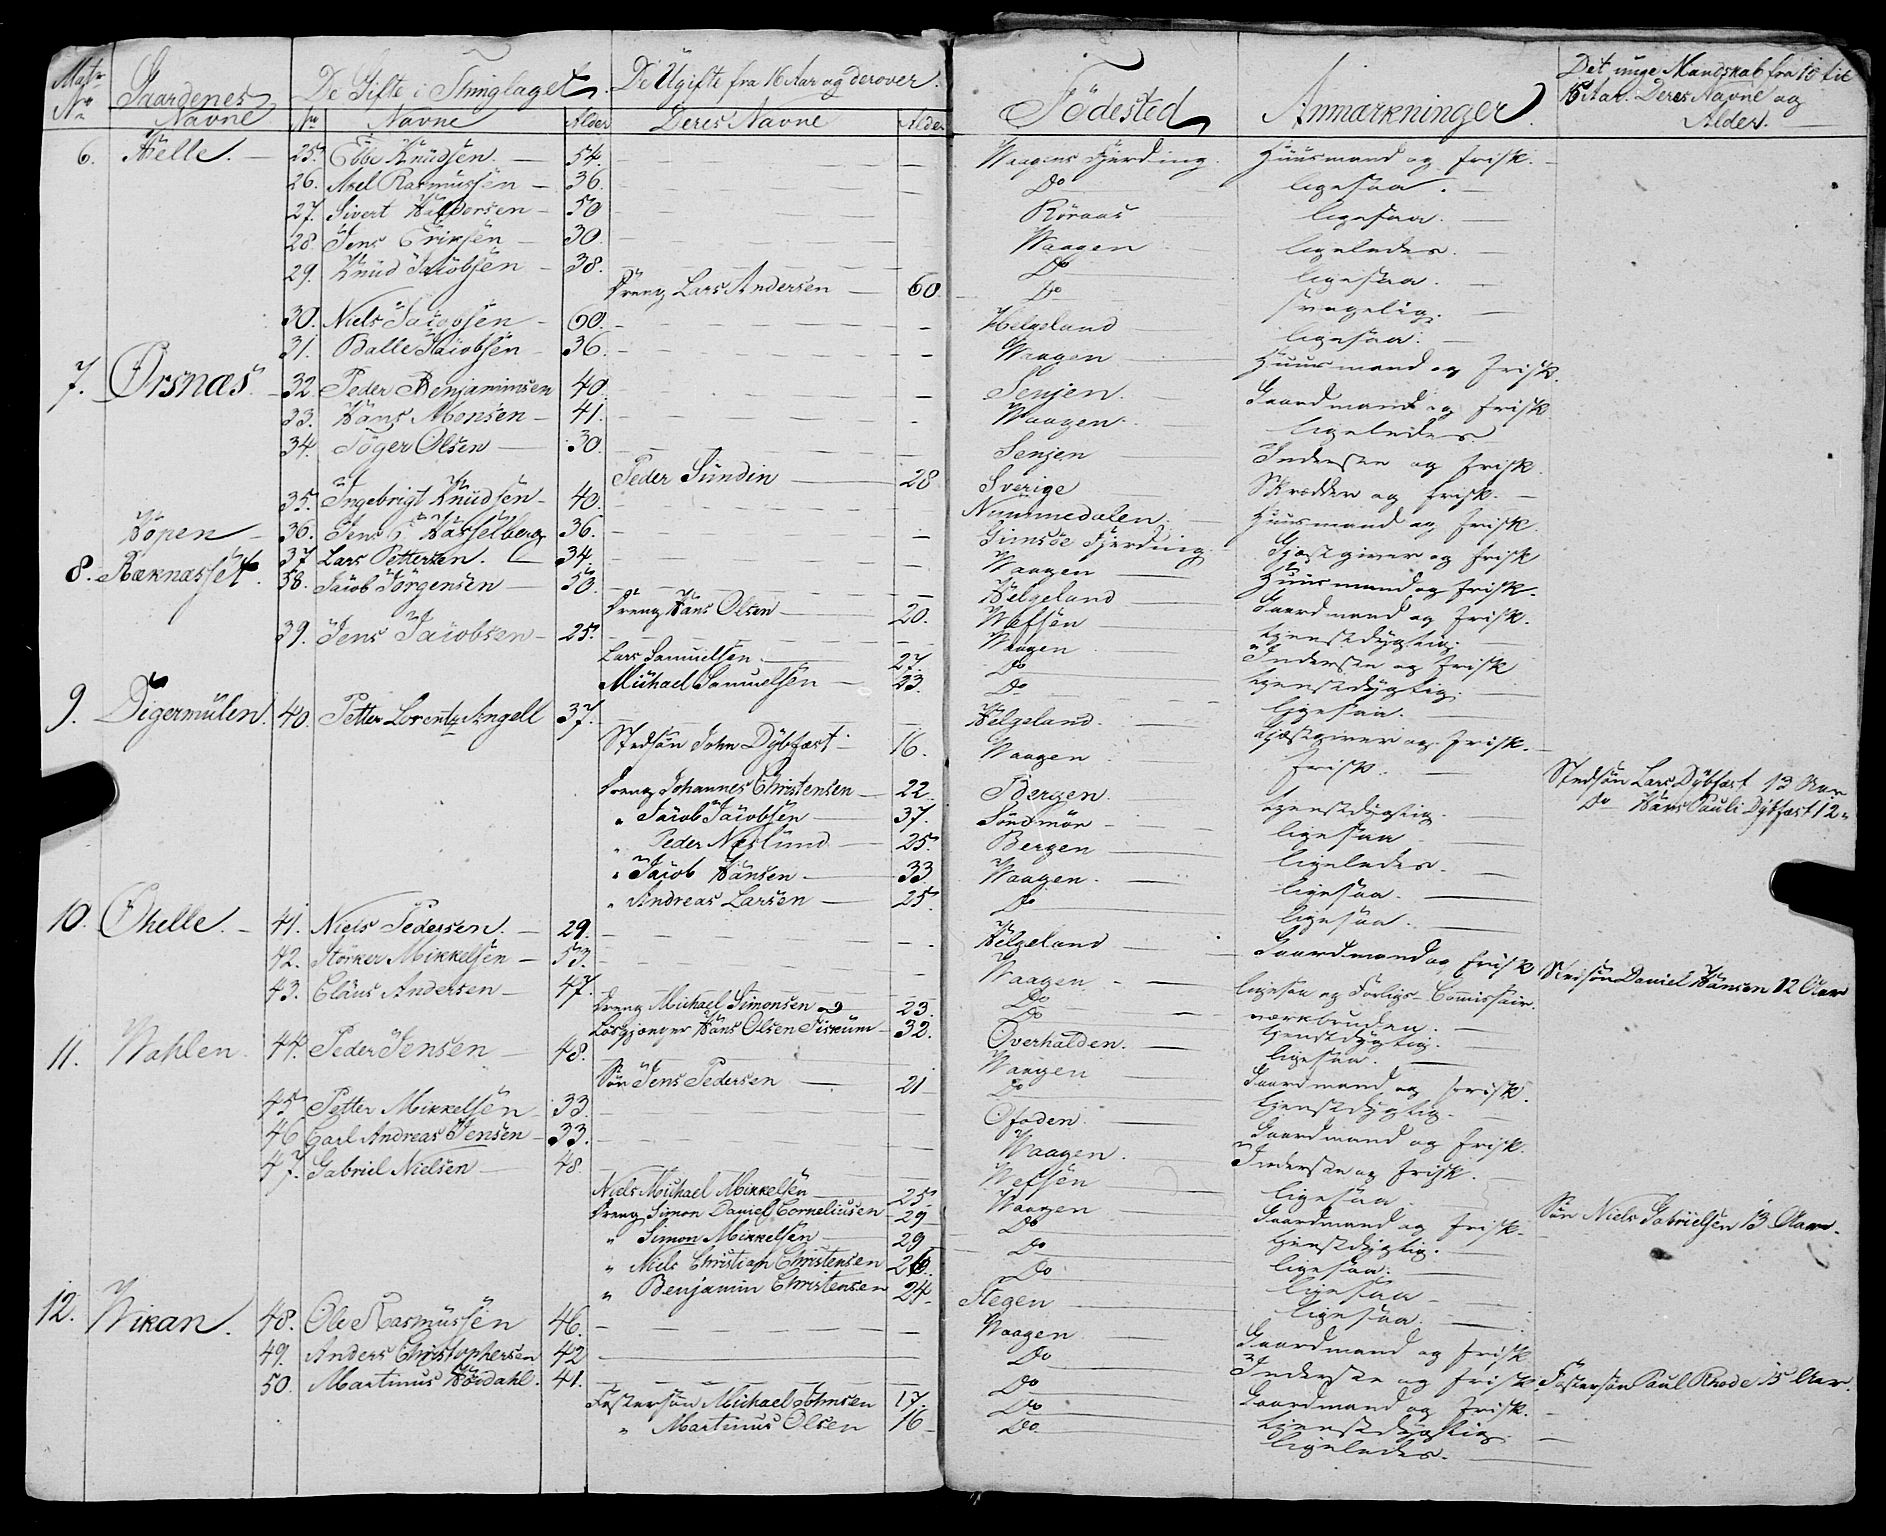 Matr No Gaardenes Navne De Gifte i Thinglaget De Ugifte fra 16 Aar og derover Födested Anmærkninger Det unge Mandskab fra 10 til
No Navne Alder Deres Navne Alder 15 Aar. Deres Navne og
Alder.
6. Helle. 25. Ebbe Knudsen. 54. Waagens Fjerding. Huusmand og frisk.
26. Axel Rasmussen 36. Do ligesaa.
27. Sivert Haldorsen 50 Röraas ligesaa.
28. Jens Eriksen 30. Waagen ligeledes.
29. Knud Jacobsen 38. Do ligesaa.
Dreng Lars Andersen 60. Do svagelig.
30. Niels Jacobsen 60. Helgeland ligesaa.
31. Balle Jacobsen 36. Waagen Huusmand og frisk.
7. Örsnæs. 32. Peder Benjaminsen 40. Senjen. Gaardmand og frisk
33. Hans Monsen 41. Waagen. ligeledes
34. Töger Olsen 30. Senjen Inderste og frisk.
Peder Sundin 28 Sverige Skrædder og frisk.
35. Ingebrigt Knudsen 40. Nummedalen. Huusmand og frisk.
Hopen 36. Jens C. Hasselberg 36. Gimsöe Fjerding Gjæstgiver og frisk
37 Lars Pettersen. 34. Waagen Huusmand og frisk.
8. Ræknæsset. 38. Jacob Jörgensen 50. Helgeland Gaardmand og frisk.
Dreng Hans Olsen 20. Wefsen tjenstdygtig.
39. Jens Jacobsen 25. Waagen Inderste og frisk
Lars Samuelsen 27. Do tjenstdygtig.
Michael Samuelsen 23. Do ligesaa.
9. Digermulen. 40. Petter Lorentz Angell 37. Helgeland. Gjæstgiver og frisk.
Stedsön John Dybfæst 16. Waagen frisk. Stedsön Lars Dybfæst 13 Aar
Do Hans Pauli Dybfæst 12 "
Dreng Johannes Christensen 22. Bergen. tjenstdygtig.
" Jacob Jacobsen 37. Söndmör ligesaa
" Peder Næslund 25. Bergen ligeledes.
" Jacob Hansen 33 Waagen. ligesaa.
" Andreas Larsen 25. Do ligesaa.
10. Öhelle. 41. Niels Pedersen. 29. Helgeland Gaardmand og frisk Stedsön Daniel Hansen 12 Aar
42. Störker Mikkelsen 53. Waagen ligesaa og Forligs-Commissair.
43. Claus Andersen 47. Do værkbruden.
Dreng Michael Simonsen 23. Do tjenstdygtig.
Lösgjænger Hans Olsen Fiskum 32. Overhalden. ligesaa.
11. Wahlen. 44. Peder Jensen 48. Waagen Gaardmand og frisk.
Sön Jens Pedersen 21 Do tjenstdygtig.
45 Petter Mikkelsen 33. Ofoden. Gaardmand og frisk.
46 Carl Andreas Jensen 33. Waagen. Inderste og frisk.
47. Gabriel Nielsen 48 Wefsen ligesaa
Niels Michael Mikkelsen 25 Waagen Gaardmand og frisk. Sön Niels Gabrielsen 13 Aar.
Dreng Simon Daniel Corneliusen 29 Do tjenstdygtig.
" Simon Mikkelsen 29 Do ligesaa.
" Niels Christian Christensen 26. Do ligesaa
" Benjamin Christensen 24. Stegen ligesaa.
12. Wikan. 48. Ole Rasmussen 46. Waagen Gaardmand og frisk
49. Anders Christophersen 42 Do Inderste og frisk
50. Martinus Hovdahl. 41. Do Gaardmand og frisk. Fostersön Paul Rhode 15 Aar.
Fostersön Michael Johnsen 17. Do tjenstdygtig
" Martinus Olsen 16 Do ligeledes.